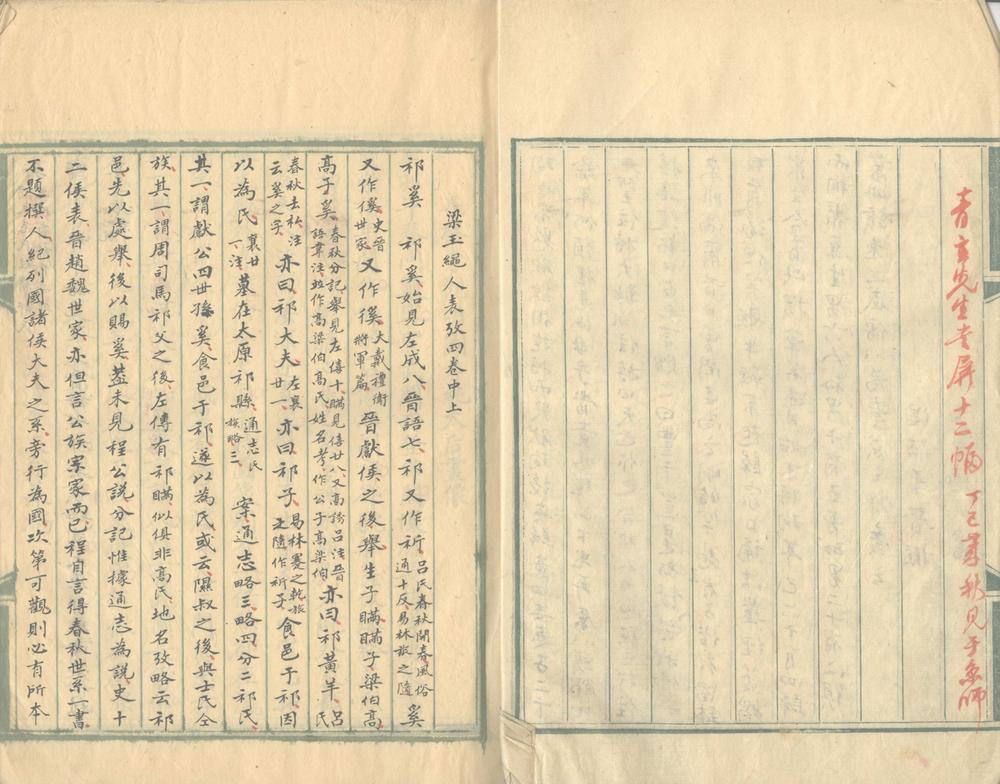 青主先生書屏十二幅 丁巳夏秋見于京師
梁玉繩人表攷四卷中上
祁奚 祁奚始見左成八晉語七祁又作祈呂氏春秋開春風俗通十反易林散之隨奚
又作傒史晉世家又作徯大戴禮衛將軍篇晉獻侯之後舉生子瞞瞞子梁伯高
高子奚春秋分記舉見左僖十瞞見僖廿八又高誘呂注晉語韋注竝作高梁伯高氏姓名考作公子高梁伯亦曰祁黃羊呂氏
春秋去私注云奚之字亦曰祁大夫左襄廿一亦曰祁子易林蹇之乾旅之隨作祈子食邑于祁因
以為氏襄廿一注墓在太原祁縣通志氏族略三 案通志略三略四分二祁氏
其一謂獻公四世孫奚食邑于祁遂以為氏或云隰叔之後與士氏仝
族其一謂周司馬祁父之後左傳有祁瞞似俱非高氏地名攷略云祁
邑先以處舉後以賜奚蓋未見程公說分記惟據通志為說史十
二侯表晉趙魏世家亦但言公族宗家而已程自言得春秋世系一書
不題撰人紀列國諸侯大夫之系旁行為國次第可觀則必有所本